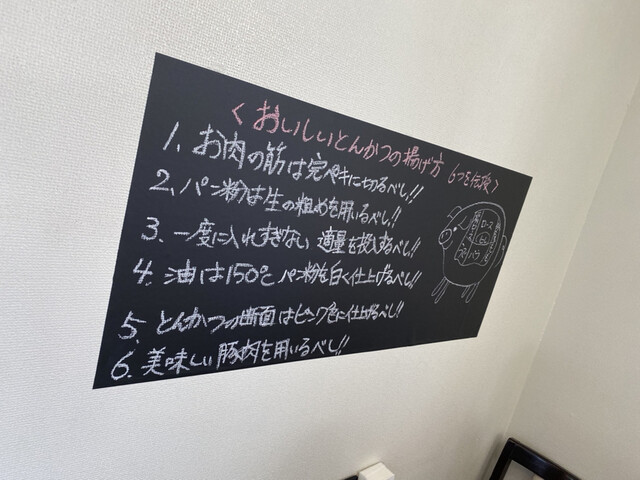 ＜おいしいとんかつの揚げ方 6つを伝授＞
1、お肉の筋は完ペキに切るべし!!
2、パン粉は生の粗めを用いるべし!!
3、一度に入れすぎない 適量を投入するべし!!
4、油は150℃ パン粉を白く仕上げるべし!!
5、とんかつの断面はピンク色に仕上げるべし!!
6、美味しい豚肉を用いるべし!!
ロース
バラ